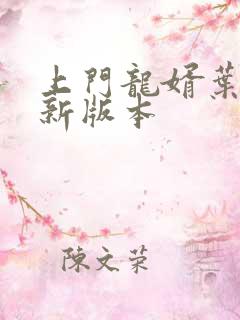 上門龍婿葉
新版本
陳文荣